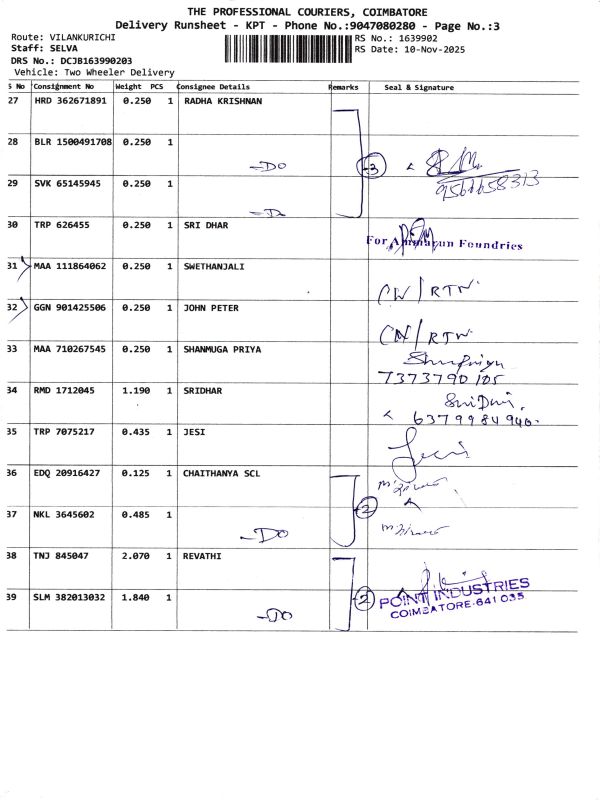 THE PROFESSIONAL COURIERS, COIMBATORE
Delivery Runsheet - KPT - Phone No.:9047080280 - Page No.:3
Route: VILANKURICHI RS No.: 1639902
Staff: SELVA RS Date: 10-Nov-2025
DRS No.: DCJB163990203
Vehicle: Two Wheeler Delivery
S No Consignment No Weight PCS Consignee Details Remarks Seal & Signature
27 HRD 362671891 0.250 1 RADHA KRISHNAN
28 BLR 1500491708 0.250 1
-DO 3
29 SVK 65145945 0.250 1
30 TRP 626455 0.250 1 SRI DHAR
For Ammarun Foundries
31 MAA 111864062 0.250 1 SWETHANJALI
CN/RTN
32 GGN 901425506 0.250 1 JOHN PETER
CN/RTN
33 MAA 710267545 0.250 1 SHANMUGA PRIYA
7373790105
34 RMD 1712045 1.190 1 SRIDHAR
SriDhar
6379984940
35 TRP 7075217 0.435 1 JESI
Jesi
36 EDQ 20916427 0.125 1 CHAITHANYA SCL
2
37 NKL 3645602 0.485 1
-DO
38 TNJ 845047 2.070 1 REVATHI
39 SLM 382013032 1.840 1
-DO 2
POINT INDUSTRIES
COIMBATORE-641 035